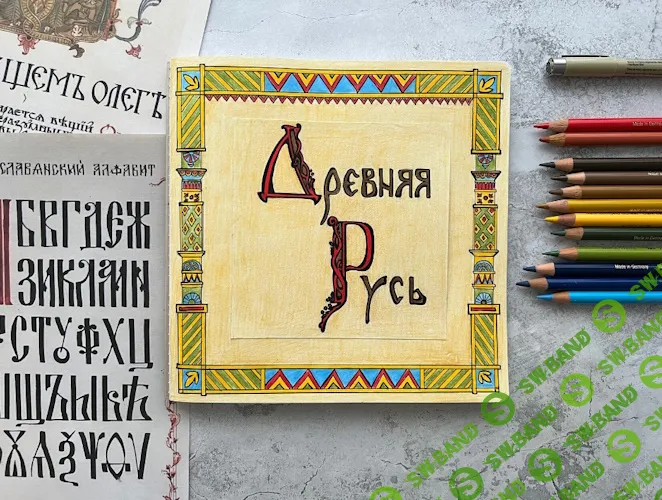 ЩЕМЪ ОЛЕГѢ
СЛАВЯНСКИЙ АЛФАВИТ
БВГДЕЖ
ЗИКЛМН
СТУФХЦ
ЩЪЫЬѢ
Древняя
Русь
Made in Germany
SW.BAND
SW.BAND
SW.BAND
SW.BAND
SW.BAND
SW.BAND